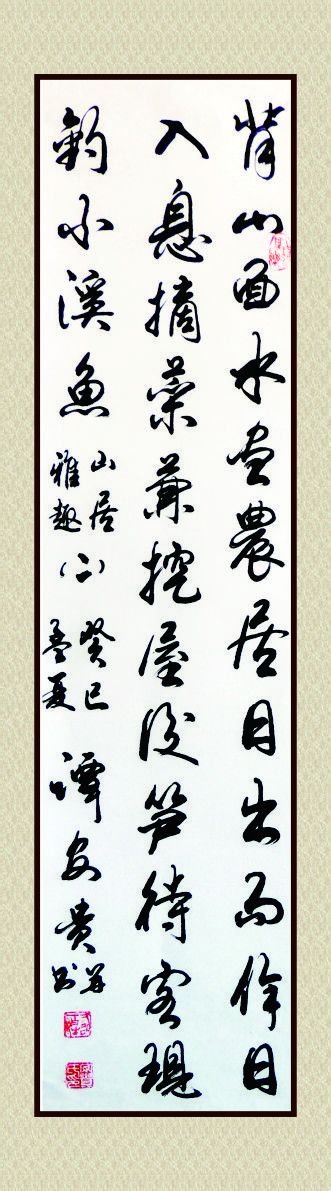 背山面水宜農居日出而作日
入息摘菜兼挖屋後笋待客現
釣小溪魚
山居
雅趣
（二）
癸巳
孟夏
譚安貴
并
书